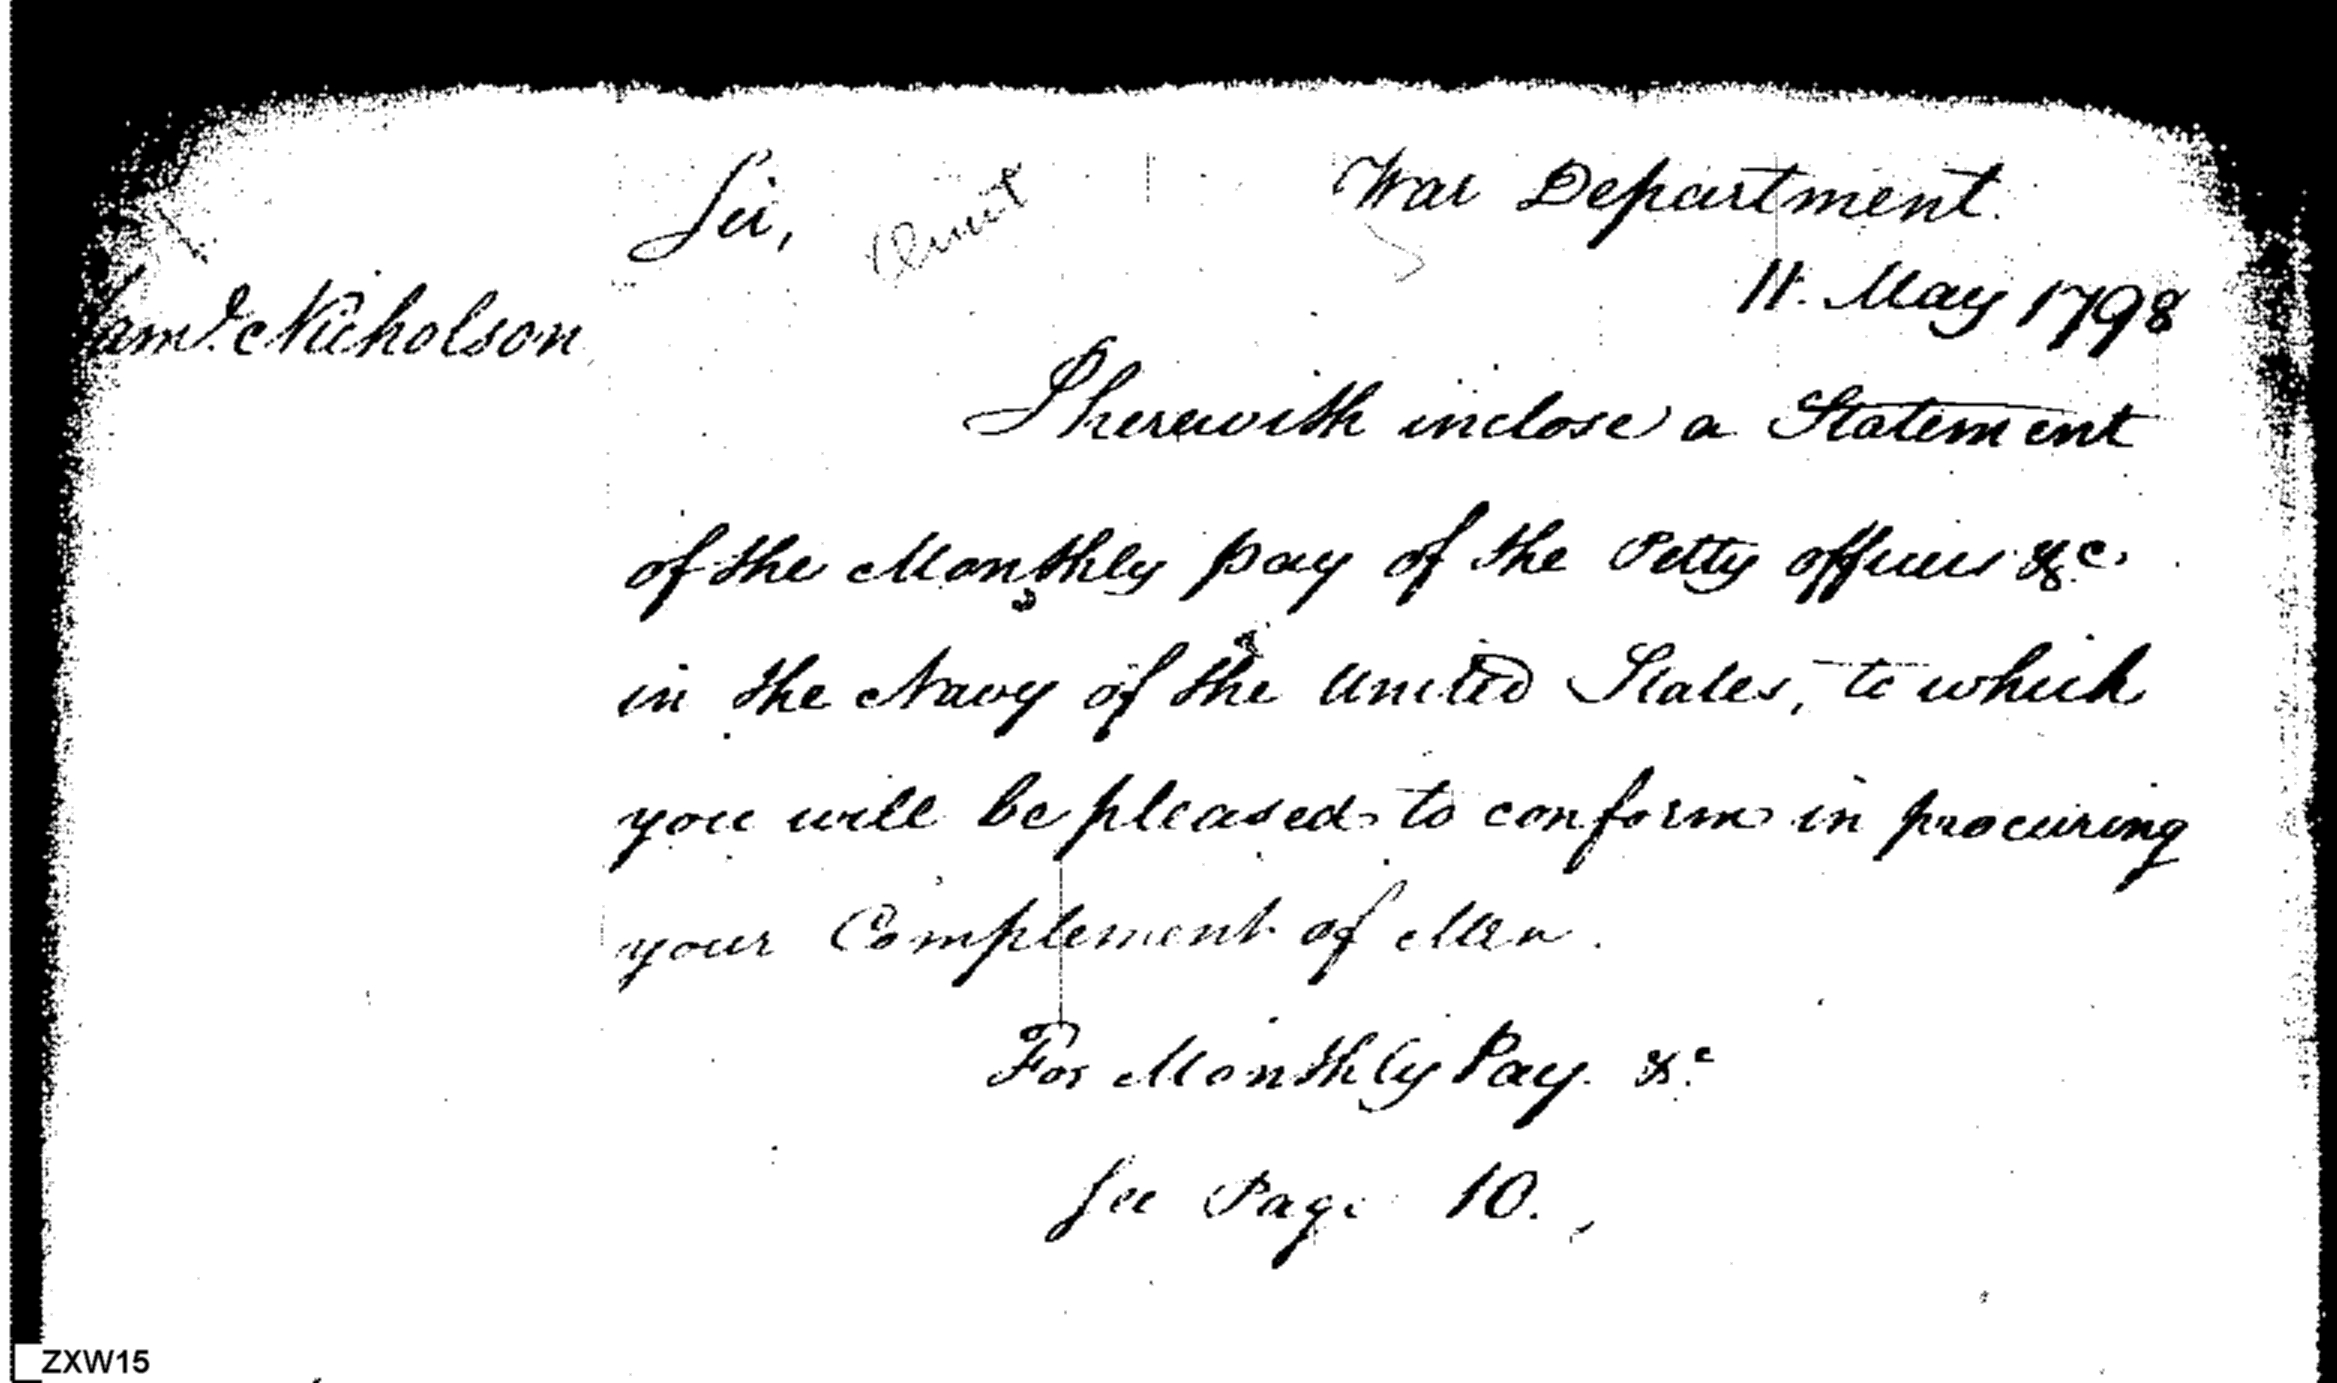 Sir,
War Department.
11. May 1798
Saml. Nicholson
I herewith inclose a Statement
of the Monthly pay of the Petty officers &c.
in the Navy of the United States, to which
you will be pleased to conform in procuring
your Complement of Men.
For Monthly Pay. &c
See Page 10.
ZXW15